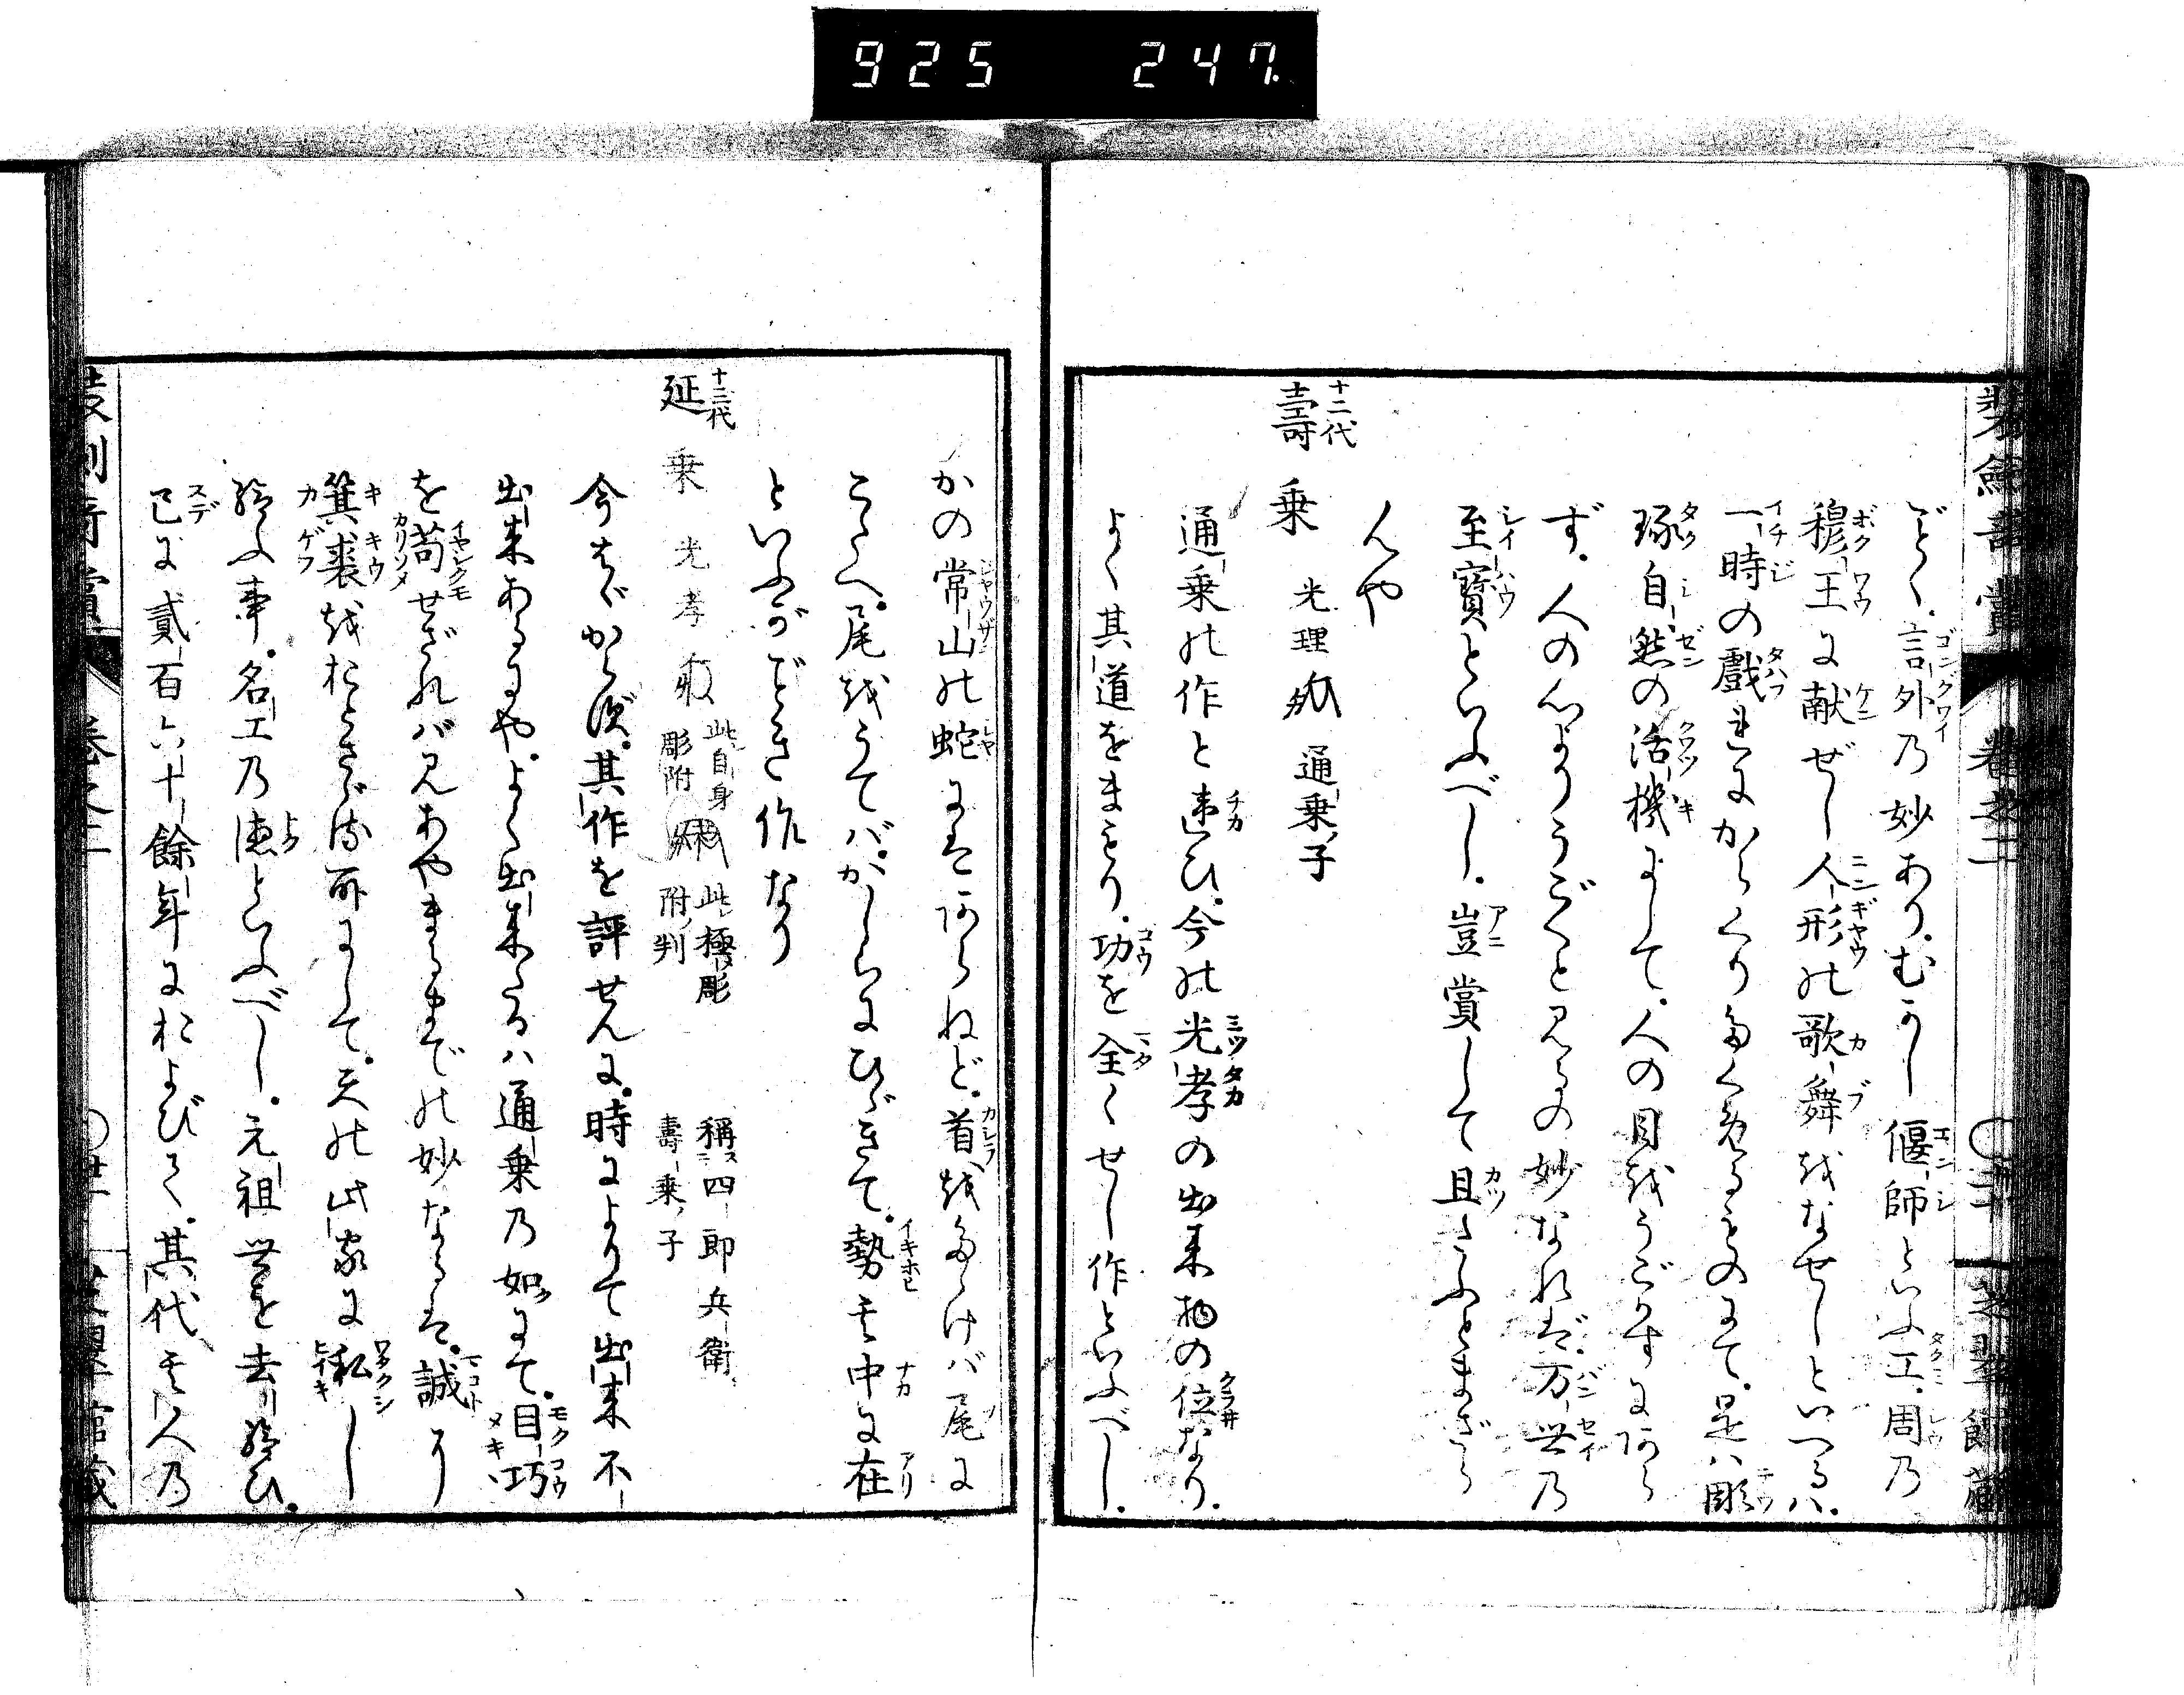 925 247
装劔奇賞 巻之二 〇三十 芝翠館蔵
ごとく。言外乃妙あり。むかし偃師といふ工。周乃
穆王に献ぜし人形の歌舞をなせしといへるハ。
一時の戯れにからくりたくめるものにて。是ハ彫
琢自然の活機にして。人の目をうごかすにあら
ず。人の心よりうごくと見るの妙なれば。万世乃
至寳といふべし。豈賞して且たふとまざら
んや
十二代
壽乗 光理 通乗ノ子
通乗の作と違ひ。今の光孝の出来物の位なり。
よく其道をまもり。功を全くせし作といふべし。
かの常山の蛇にはあらねど。首をたゝけバ尾に
こたへ。尾をうてバ。かしらにひゞきて。勢其中に在
といふがごとき作なり
十三代
延乗 光孝 此自身彫附 此極メ彫附ノ判 稱ス四郎兵衛 壽乗ノ子
今はゞからず。其作を評せんに。時によりて出来不
出来あるにや。よく出来たるハ通乗乃如にて。目巧
を苟せざれバ見あやまるまでの妙なるは。誠に
箕裘をおとさゞる所にして。天の此家に私し
給ふ事。名工乃徳といふべし。元祖世を去給ひ。
已に貳百六十餘年におよびて。其代其人乃
装劔奇賞 巻之二 〇卅一 芝翠館蔵